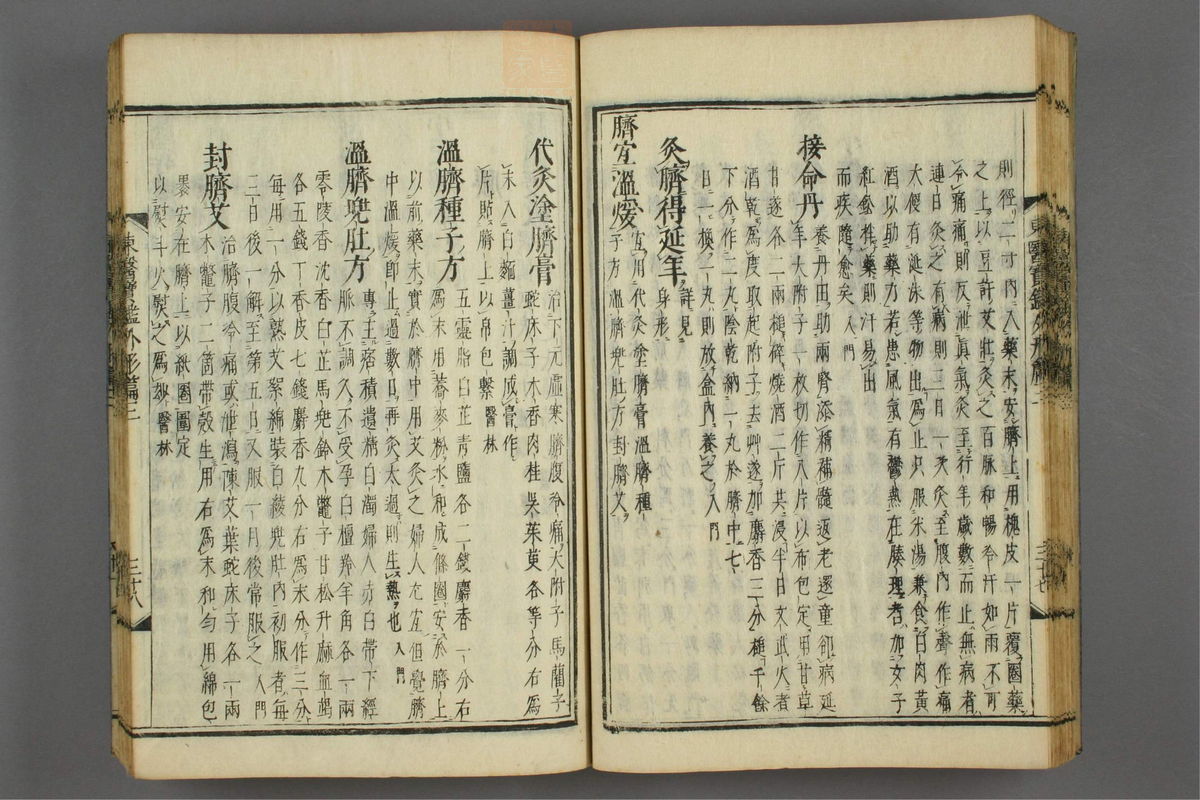 則徑二寸內入藥末安臍上用槐皮一片覆圈藥
之上以豆許艾壯灸之百脉和暢冷汗如雨不可
令痛痛則反泄眞氣灸至行年歲數而止無病者
連日灸之有病則三日一次灸至腹內作聲作痛
大便有涎沫等物出爲止只服米湯兼食白肉黃
酒以助藥力若患風氣有鬱熱在腠理者加女子
紅鉛拌藥則汗易出
而疾隨愈矣入門
接命丹
養丹田助兩腎添精補髓返老還童却病延
年大附子一枚切作八片以布包定用甘草
甘遂各二兩槌碎燒酒二斤共浸半日文武火煮
酒乾爲度取起附子去艸遂加麝香三分槌千餘
下分作二丸陰乾納一丸於臍中七
日一換一丸則放盒內養之入門
灸臍得延年
詳見
身形
臍宜溫煖
宜用代灸塗臍膏溫臍種
子方溫臍兜肚方封臍艾
代灸塗臍膏
治下元虛寒臍腹冷痛大附子馬藺子
蛇床子木香肉桂吳茱萸各等分右爲
末入白麵薑汁調成膏作
片貼臍上以帛包繫醫林
溫臍種子方
五靈脂白芷靑鹽各二錢麝香一分右
爲末用蕎麥粉水和成條圈安於臍上
以前藥末實於臍中用艾灸之婦人尤宜但覺臍
中溫煖卽止過數日再灸太過則生熱也入門
溫臍兜肚方
專主痞積遺精白濁婦人赤白帶下經
脉不調久不受孕白檀羚羊角各一兩
零陵香沈香白芷馬兜鈴木鱉子甘松升麻血竭
各五錢丁香皮七錢麝香九分右爲末分作三分
每用一分以熟艾絮綿裝白綾兜肚內初服者每
三日後一解至第五日又服一月後常服之入門
封臍艾
治臍腹冷痛或泄瀉陳艾葉蛇床子各一兩
木鱉子二箇帶殼生用右爲末和勻用綿包
裹安在臍上以紙圈圈定
以熨斗火熨之爲妙醫林
東醫寶鑑外形篇三
三十八